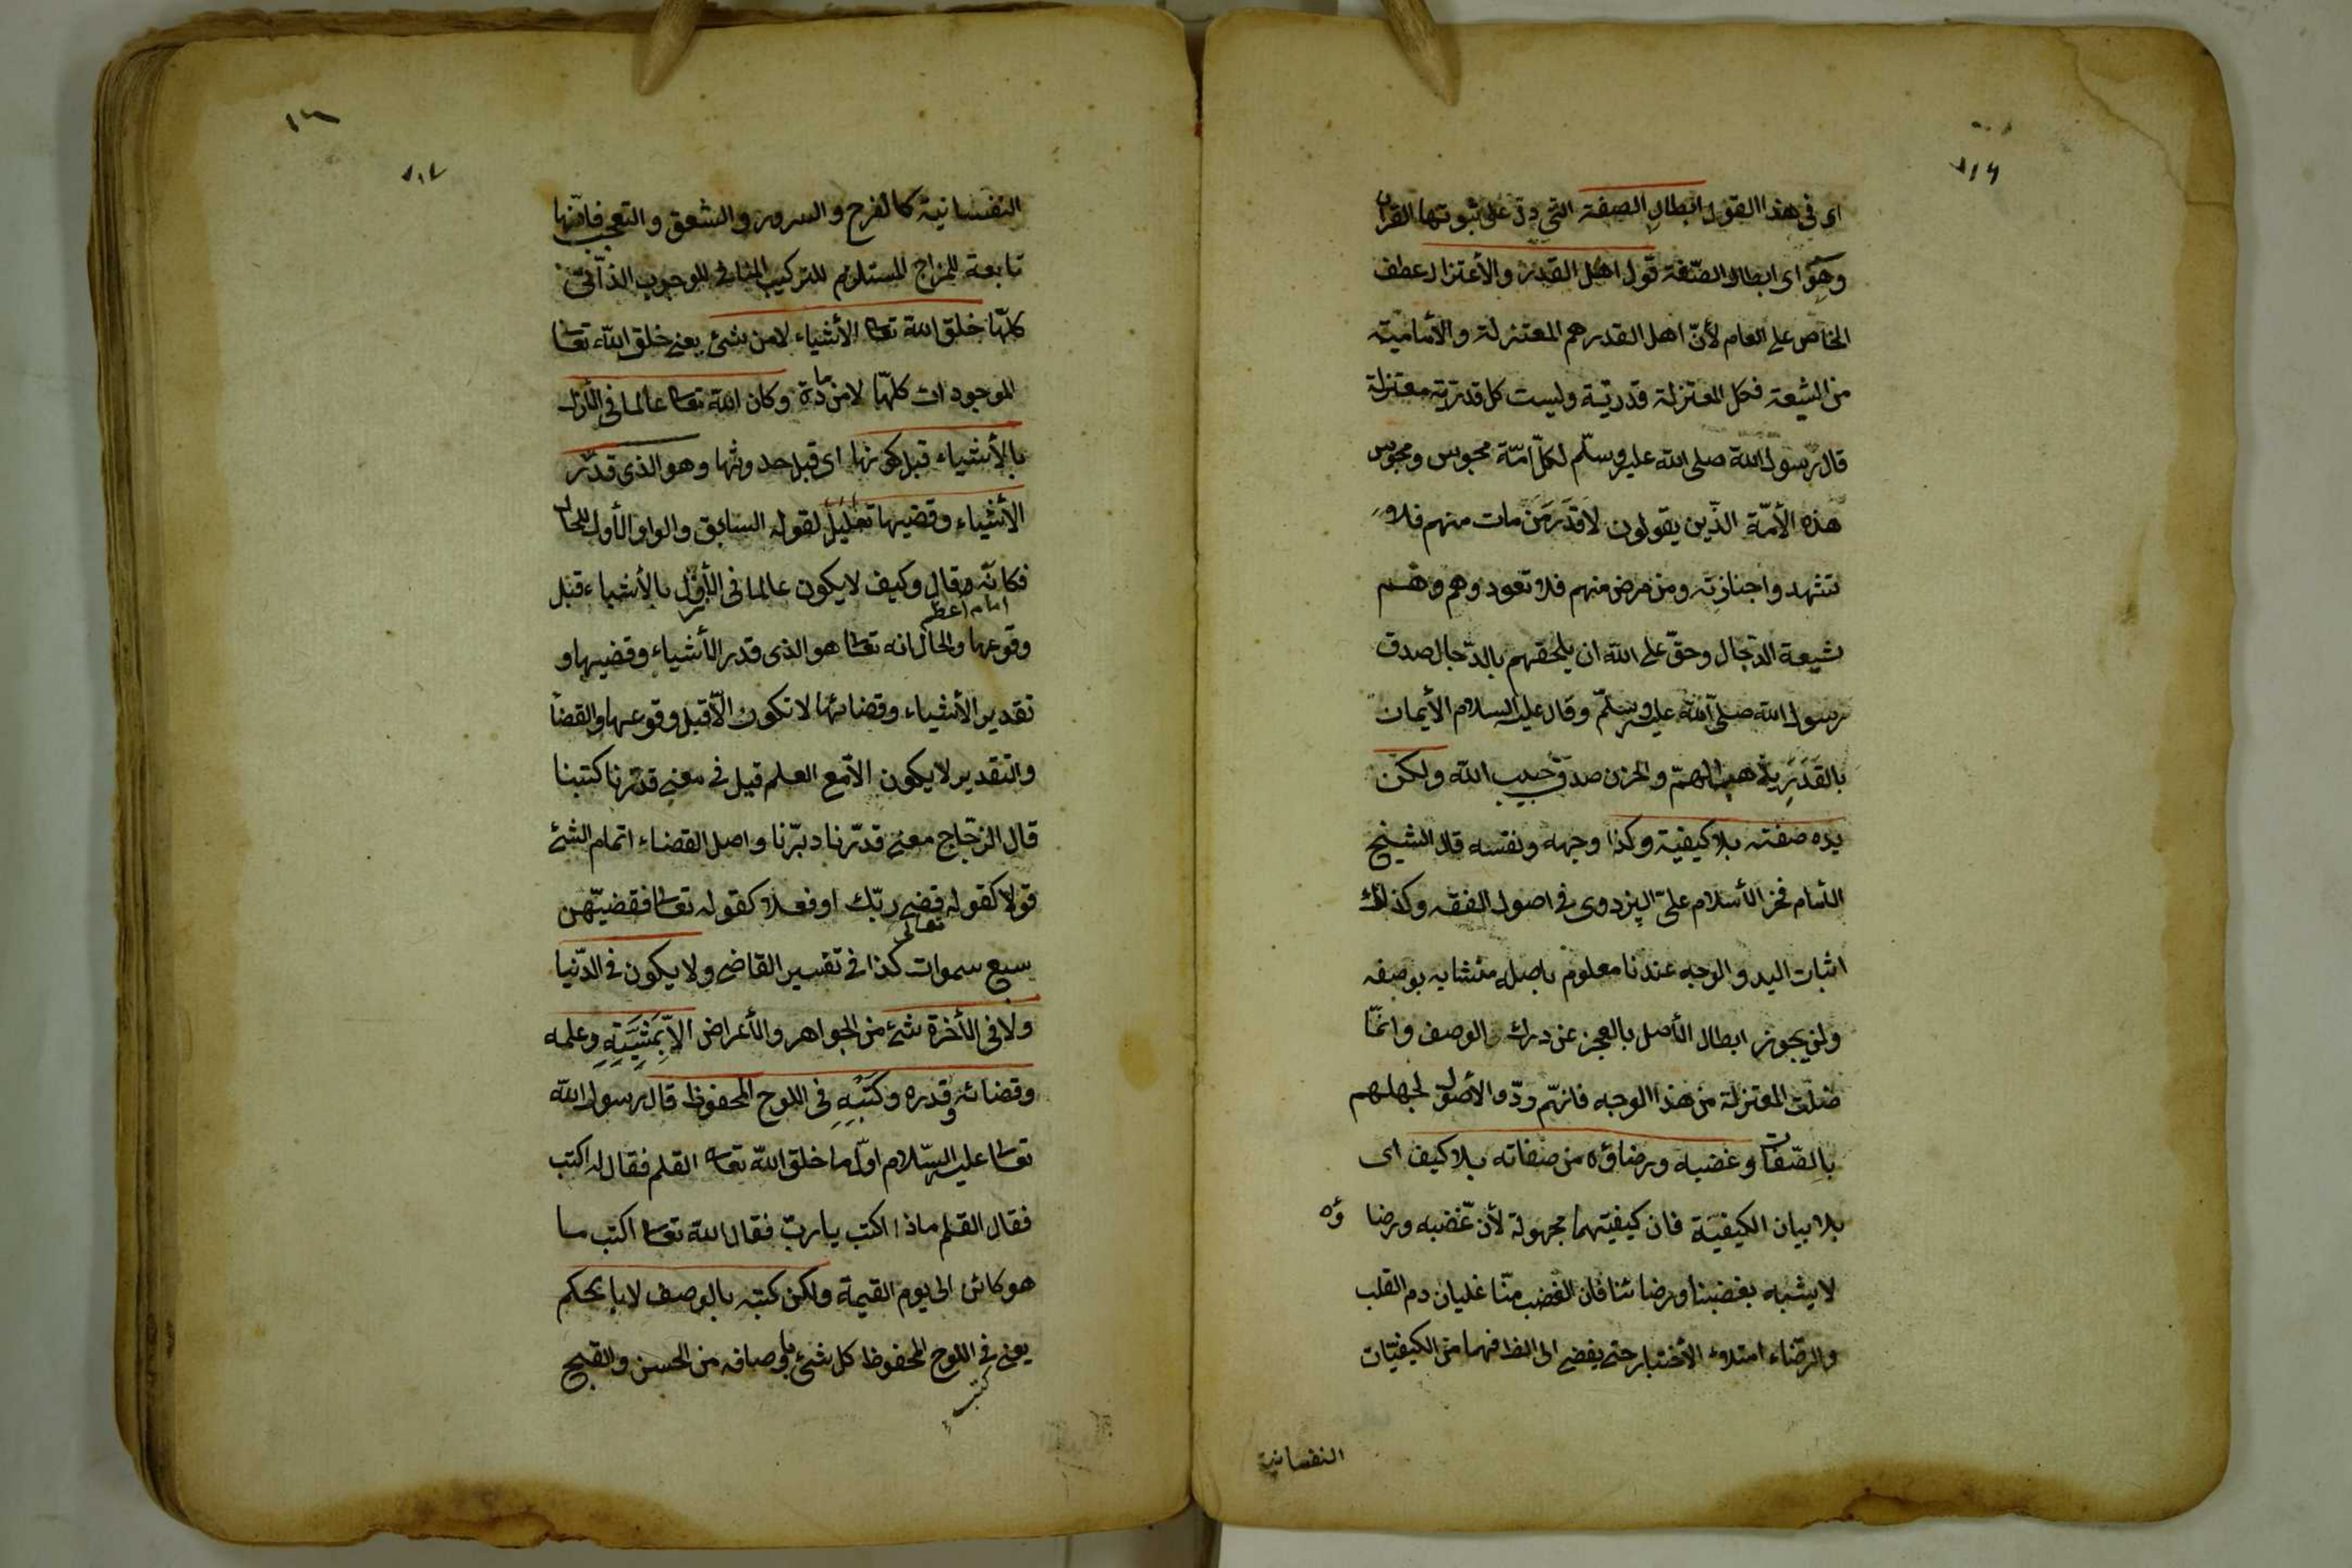 ٨١٦
اى فى هذا القول ابطال الصفة التى دلّ على ثبوتها القرآن
وهو اى ابطال الصّفة قول اهل القدر والأعتزال عطف
الخاص على العام لأنّ اهل القدر هم المعتزلة والأماميّة
من الشيعة فكل المعتزلة قدريّة وليست كل قدريّة معتزلة
قال رسول الله صلى الله عليه وسلّم لكلّ امّة مجوس ومجوس
هذه الأمّة الذّين يقولون لا قَدَرَ مَن مات منهم فلا
تشهدوا جنازته ومن مرض منهم فلا تعودوهم وهم
شيعة الدجال وحقّ على الله ان يلحقهم بالدّجال صدق
رسول الله صلّى الله عليه وسلّم وقال عليه السلام الأيمان
بالقَدَرِ يذهب الهمّ والحزن صدق حبيب الله ولكن
يده صفته بلا كيفيّة وكذا وجهه ونفسه قال الشيخ
الأمام فخر الأسلام علىّ البزدوى فى اصول الفقه وكذلك
اثبات اليد والوجه عندنا معلوم باصله متشابه بوصفه
ولن يجوز ابطال الأصل بالعجز عن درك الوصف وانّما
ضلّت المعتزلة من هذا الوجه فانهّم ردّوا الأصول لجهلهم
بالصّفات وغضبه ورضاؤه من صفاته بلا كيف اى
بلا بيان الكيفيّة فان كيفيّتهما مجهولة لأنّ غضبه ورضاؤه
لا يشبه بغضبنا ورضائنا فان الغضب منّا غليان دم القلب
والرضاء امتلاء الأختيار حتى يفضى الى الظاهر فهما من الكيفيّات
النفسانية
٨١٧
النفسانية كالفرح والسرور والشعق والتعجب فانّها
تابعة للمزاج المستلزم للتركيب المنافى للوجوب الذّاتىّ
كلّها خلق الله تعالى الأشياء لا من شئ يعنى خلق الله تعالى
الموجودات كلهّا لا من مادة وكان الله تعالى عالما فى الأزل
بالأشياء قبل كونها اى قبل حدوثها وهو الذى قدّر
الأشياء وقضيها تعليل لقوله السابق والواو الأول للحال
فكانّه قال وكيف لا يكون عالما فى الأزل بالأشياء قبل
امام اعظم
وقوعها والحال انه تعالى هو الذى قدر الأشياء وقضيها و
تقدير الأشياء وقضائها لا تكون الّا قبل وقوعها والقضأ
والتقدير لا يكون الّا مع العلم قيل فى معنى قدّرنا كتبنا
قال الزجّاج معنى قدّرنا دبّرنا واصل القضاء اتمام الشئ
قولا كقوله تعالى قضى ربّك او فعلا كقوله تعالى فقضيّهن
سبع سموات كذا فى تفسير القاضى ولا يكون فى الدّنيا
ولا فى الأخرة شئ من الجواهر والأعراض الّا بِمَشِيَّتِهِ وعلمه
وقضائه وقدره وكَتْبِهِ فى اللوح المحفوظ قال رسول الله
تعالى عليه السّلام اوّل ما خلق الله تعالى القلم فقال له اكتب
فقال القلم ماذا اكتب يا ربّ فقال الله تعالى اكتب ما
هو كائن الى يوم القيمة ولكن كتبه بالوصف لا بالحكم
يعنى كتب فى اللوح المحفوظ كل شئ باوصافه من الحسن والقبح